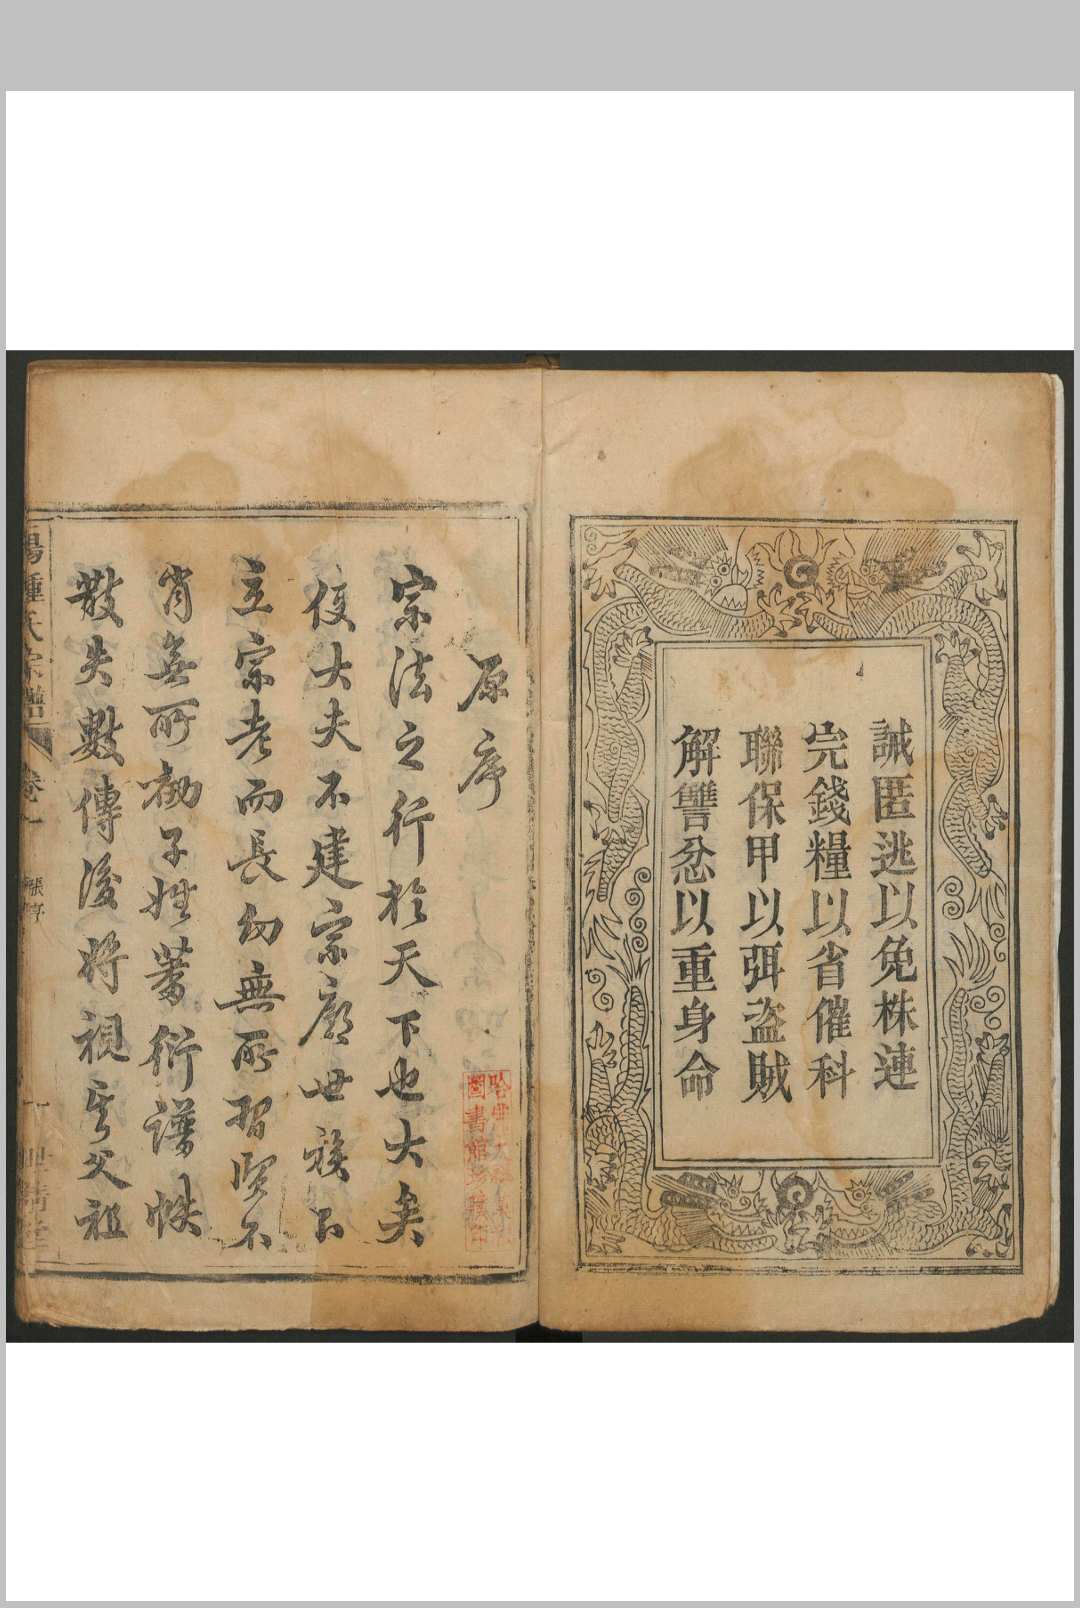 誡匿逃以免株連
完錢糧以省催科
聯保甲以弭盗賊
解讐忿以重身命
原序
宗法之行於天下也大矣
後大夫不建宗廟世族不
立宗老而長幼無所習賢不
肖無所勸子姓蕃衍譜帙
散失數傳後將視其父祖
鍾氏宗譜
卷
張序
圖書館